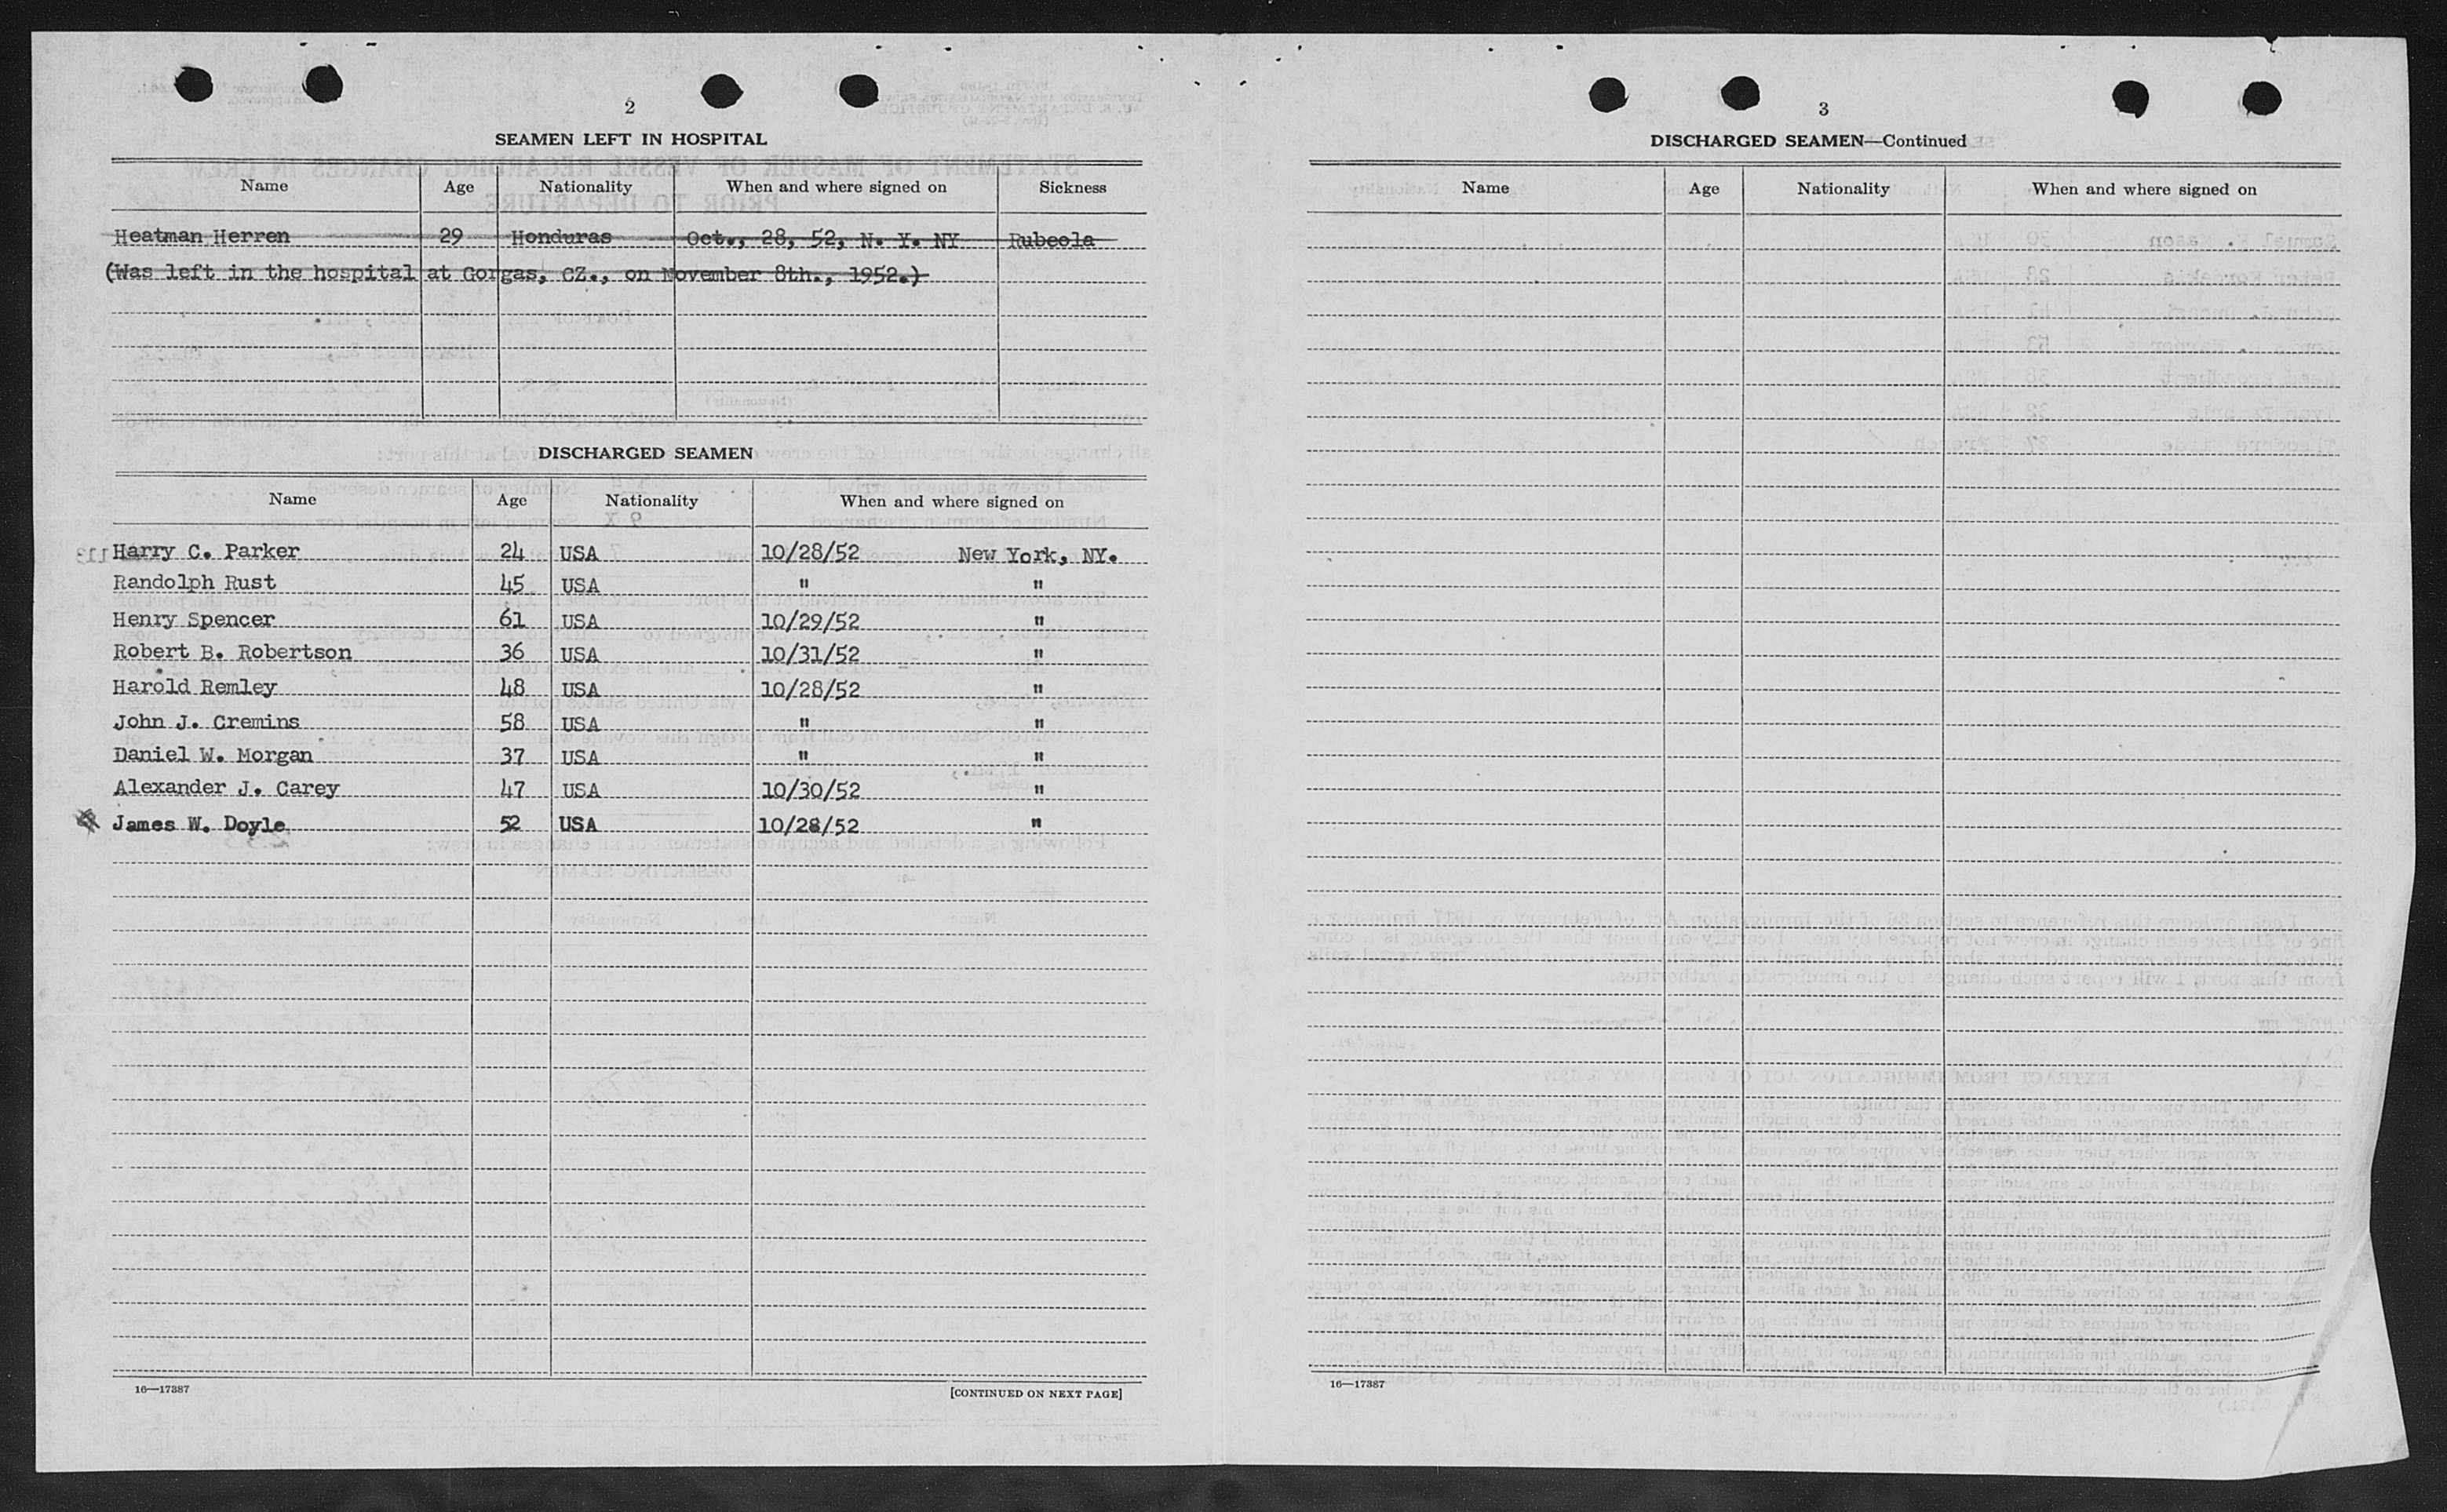 2
SEAMEN LEFT IN HOSPITAL
Name Age Nationality When and where signed on Sickness
Heatman Herren 29 Honduras Oct., 28, 52, N. Y. NY Rubeola
(Was left in the hospital at Gorgas, CZ., on November 8th., 1952.)
DISCHARGED SEAMEN
Name Age Nationality When and where signed on
Harry C. Parker 24 USA 10/28/52 New York, NY.
Randolph Rust 45 USA " "
Henry Spencer 61 USA 10/29/52 "
Robert B. Robertson 36 USA 10/31/52 "
Harold Remley 48 USA 10/28/52 "
John J. Cremins 58 USA " "
Daniel W. Morgan 37 USA " "
Alexander J. Carey 47 USA 10/30/52 "
James W. Doyle 52 USA 10/28/52 "
16—17387 [CONTINUED ON NEXT PAGE]
3
DISCHARGED SEAMEN—Continued
Name Age Nationality When and where signed on
16—17387